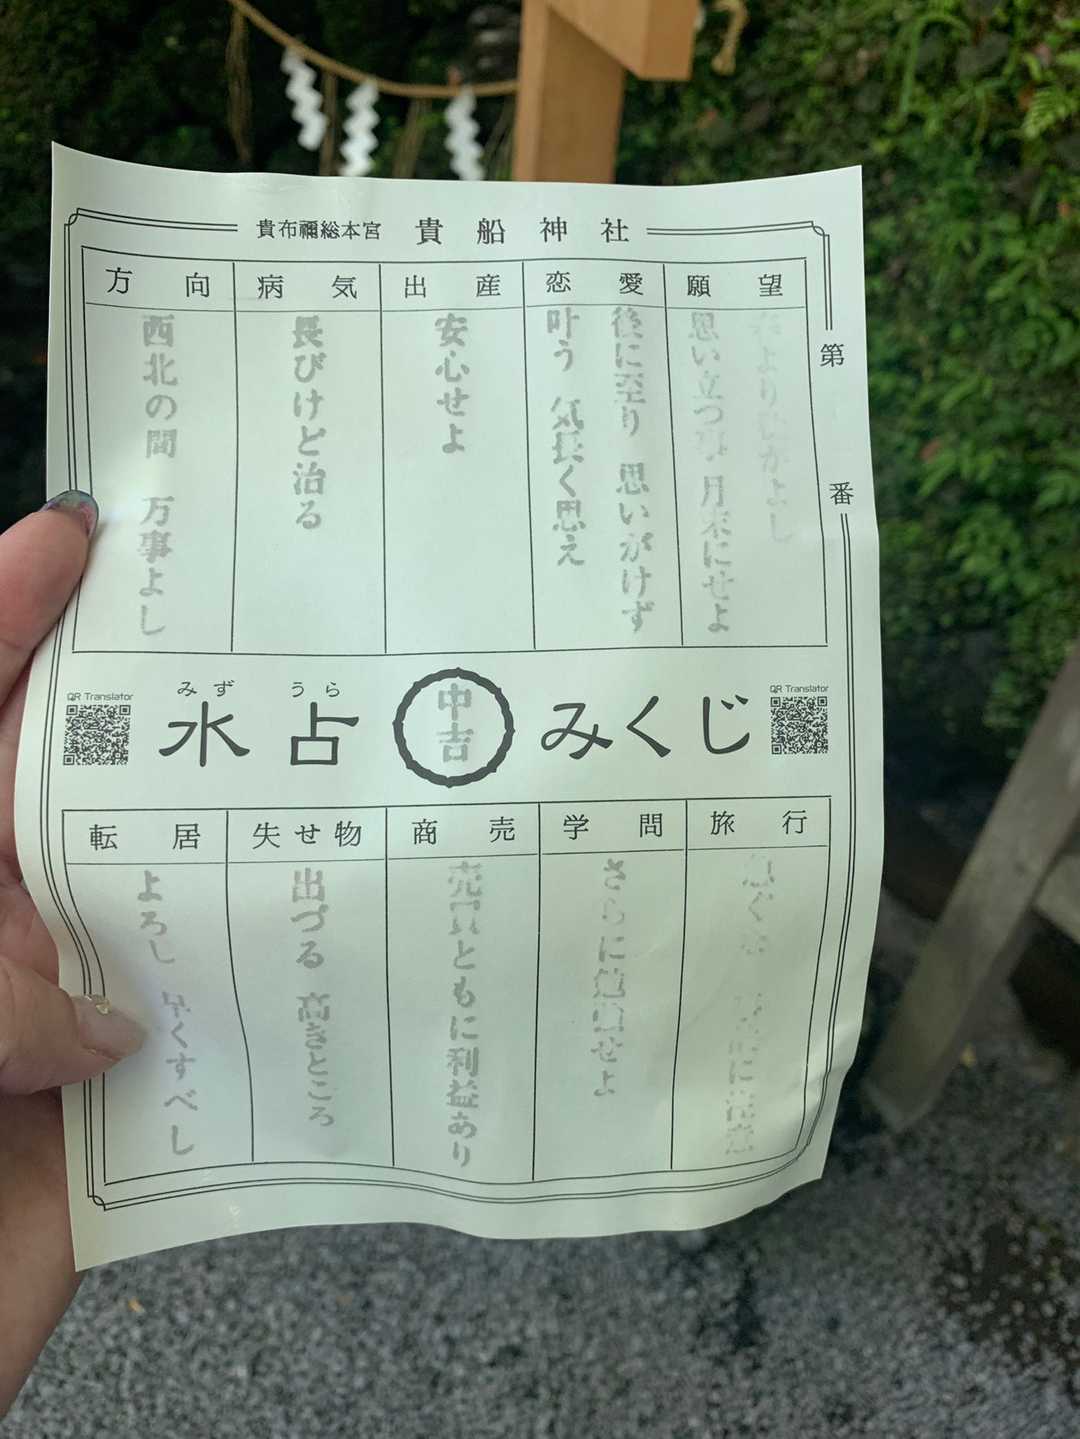 貴布禰総本宮 貴船神社
第 番
願望
思い立つ事 月末にせよ
恋愛
後に至り 思いがけず
叶う 気長く思え
出産
安心せよ
病気
長びけど治る
方向
西北の間 万事よし
QR Translator
みず うら
水占 中吉 みくじ
QR Translator
旅行
急ぐな
に注意
学問
さらに勉強せよ
商売
売買ともに利益あり
失せ物
出づる 高きところ
転居
よろし 早くすべし